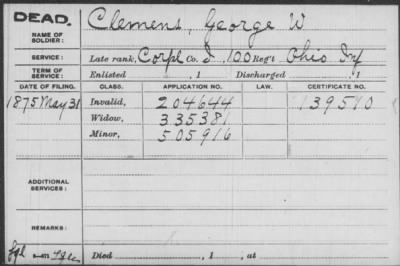 DEAD. Clemens, George W
NAME OF SOLDIER:
SERVICE: Late rank, Corpl Co. I, 100 Reg't Ohio Inf
TERM OF SERVICE: Enlisted , 1 Discharged , 1
DATE OF FILING. CLASS. APPLICATION NO. LAW. CERTIFICATE NO.
1875 May 31 Invalid, 204644 139510
Widow, 335381
Minor, 505916
ADDITIONAL SERVICES:
REMARKS:
Died , 1 , at